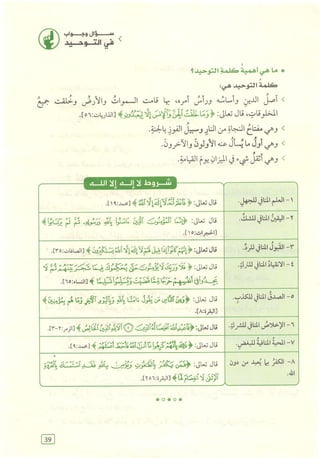 سؤال وجواب
في التوحيد
• ما هي أهمية كلمة التوحيد؟
كلمة التوحيد هي:
> أصل الدين وأساسه ورأس أمره، بها قامت السموات والأرض وخلقت جميع
المخلوقات، قال تعالى: ﴿وَمَا خَلَقْتُ الْجِنَّ وَالْإِنسَ إِلَّا لِيَعْبُدُونِ﴾ [الذاريات: ٥٦].
> وهي مفتاح النجاة من النار وسبيل الفوز بالجنة.
> وهي أول ما يُسأل عنه الأولون والآخرون.
> وهي أثقل شيء في الميزان يوم القيامة.
شروط لا إله إلا الله
١- العلم المنافي للجهل. قال تعالى: ﴿فَاعْلَمْ أَنَّهُ لَا إِلَٰهَ إِلَّا اللَّهُ﴾ [محمد: ١٩].
٢- اليقين المنافي للشك. قال تعالى: ﴿إِنَّمَا الْمُؤْمِنُونَ الَّذِينَ آمَنُوا بِاللَّهِ وَرَسُولِهِ ثُمَّ لَمْ يَرْتَابُوا﴾
[الحجرات: ١٥].
٣- القبول المنافي للرد. ﴿إِنَّهُمْ كَانُوا إِذَا قِيلَ لَهُمْ لَا إِلَٰهَ إِلَّا اللَّهُ يَسْتَكْبِرُونَ﴾ [الصافات: ٣٥].
٤- الانقياد المنافي للترك. ﴿فَلَا وَرَبِّكَ لَا يُؤْمِنُونَ حَتَّىٰ يُحَكِّمُوكَ فِيمَا شَجَرَ بَيْنَهُمْ ثُمَّ لَا
يَجِدُوا فِي أَنفُسِهِمْ حَرَجًا مِّمَّا قَضَيْتَ وَيُسَلِّمُوا تَسْلِيمًا﴾ [النساء: ٦٥].
٥- الصدق المنافي للكذب. قال تعالى: ﴿وَمِنَ النَّاسِ مَن يَقُولُ آمَنَّا بِاللَّهِ وَبِالْيَوْمِ الْآخِرِ وَمَا هُم بِمُؤْمِنِينَ﴾
[البقرة: ٨].
٦- الإخلاص المنافي للشرك. قال تعالى: ﴿فَاعْبُدِ اللَّهَ مُخْلِصًا لَّهُ الدِّينَ ۝ أَلَا لِلَّهِ الدِّينُ الْخَالِصُ﴾ [الزمر: ٢-٣].
٧- المحبة المنافية للبغض. ﴿ذَٰلِكَ بِأَنَّهُمْ كَرِهُوا مَا أَنزَلَ اللَّهُ فَأَحْبَطَ أَعْمَالَهُمْ﴾ [محمد: ٩].
٨- الكفر بما يُعبد من دون قال تعالى: ﴿فَمَن يَكْفُرْ بِالطَّاغُوتِ وَيُؤْمِن بِاللَّهِ فَقَدِ اسْتَمْسَكَ بِالْعُرْوَةِ
الله. الْوُثْقَىٰ لَا انفِصَامَ لَهَا﴾ [البقرة: ٢٥٦].
39